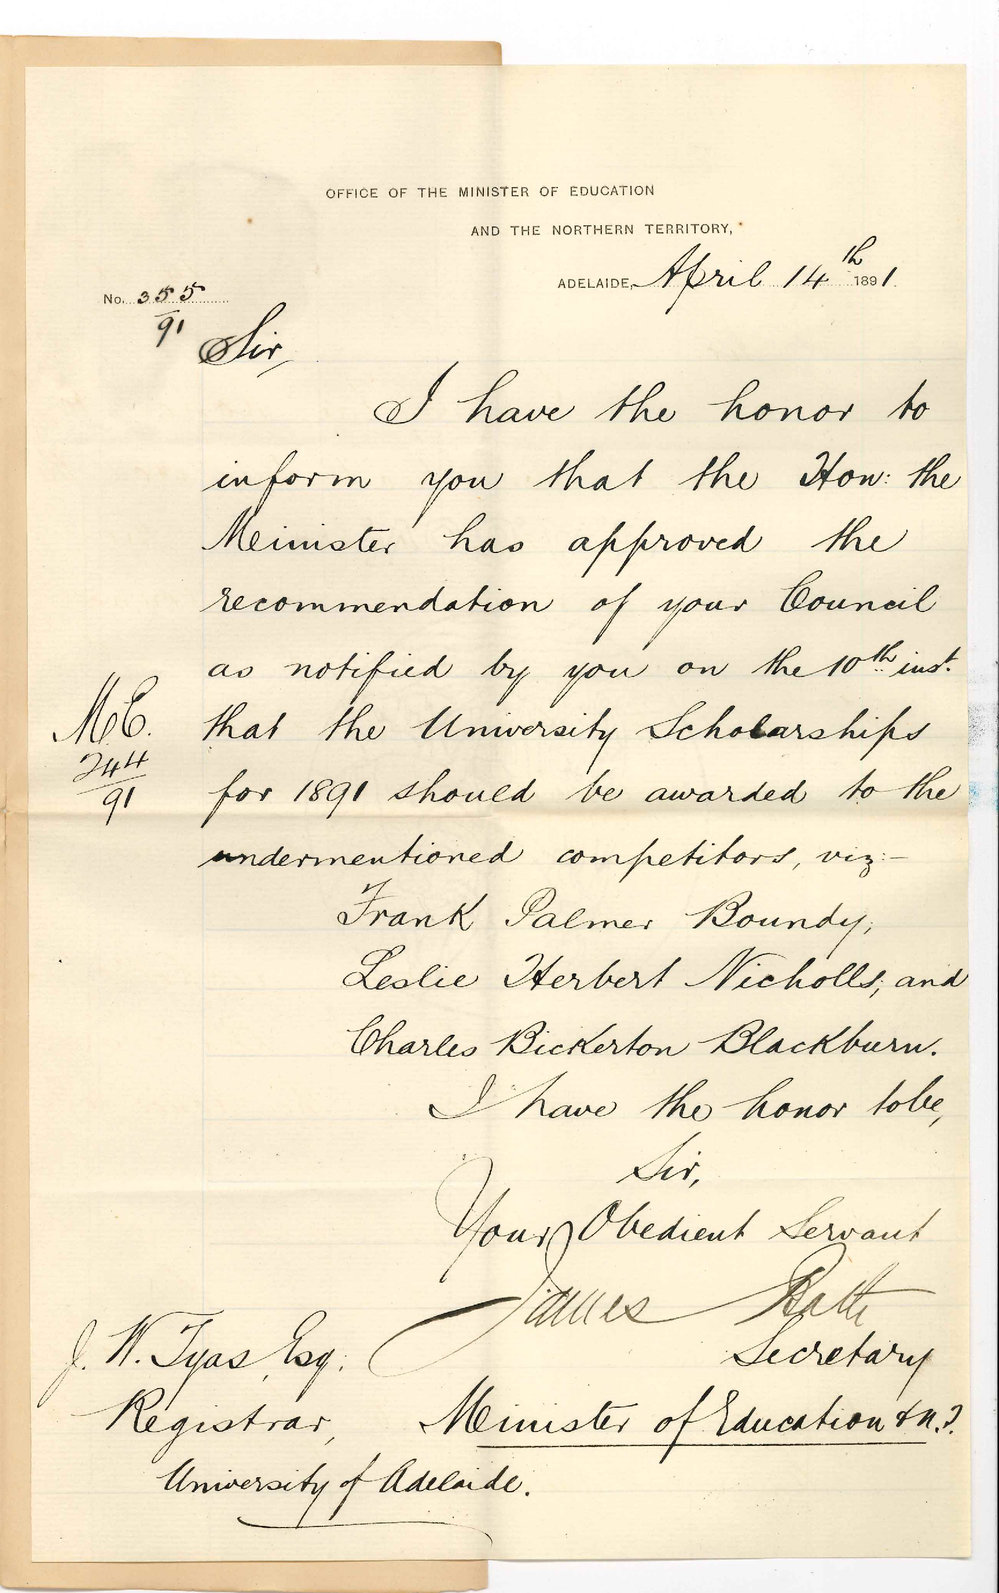 OFFICE OF THE MINISTER OF EDUCATION
AND THE NORTHERN TERRITORY,
ADELAIDE, April 14th 1891.
No. 355
91
Sir,
I have the honor to
inform you that the Hon: the
Minister has approved the
recommendation of your Council
as notified by you on the 10th inst.
M.E.
244
91
that the University Scholarships
for 1891 should be awarded to the
undermentioned competitors, viz:—
Frank Palmer Boundy,
Leslie Herbert Nicholls, and
Charles Bickerton Blackburn.
I have the honor to be,
Sir,
Your Obedient Servant
James Bath
Secretary
Minister of Education & N.T.
J. W. Tyas, Esq.
Registrar,
University of Adelaide.